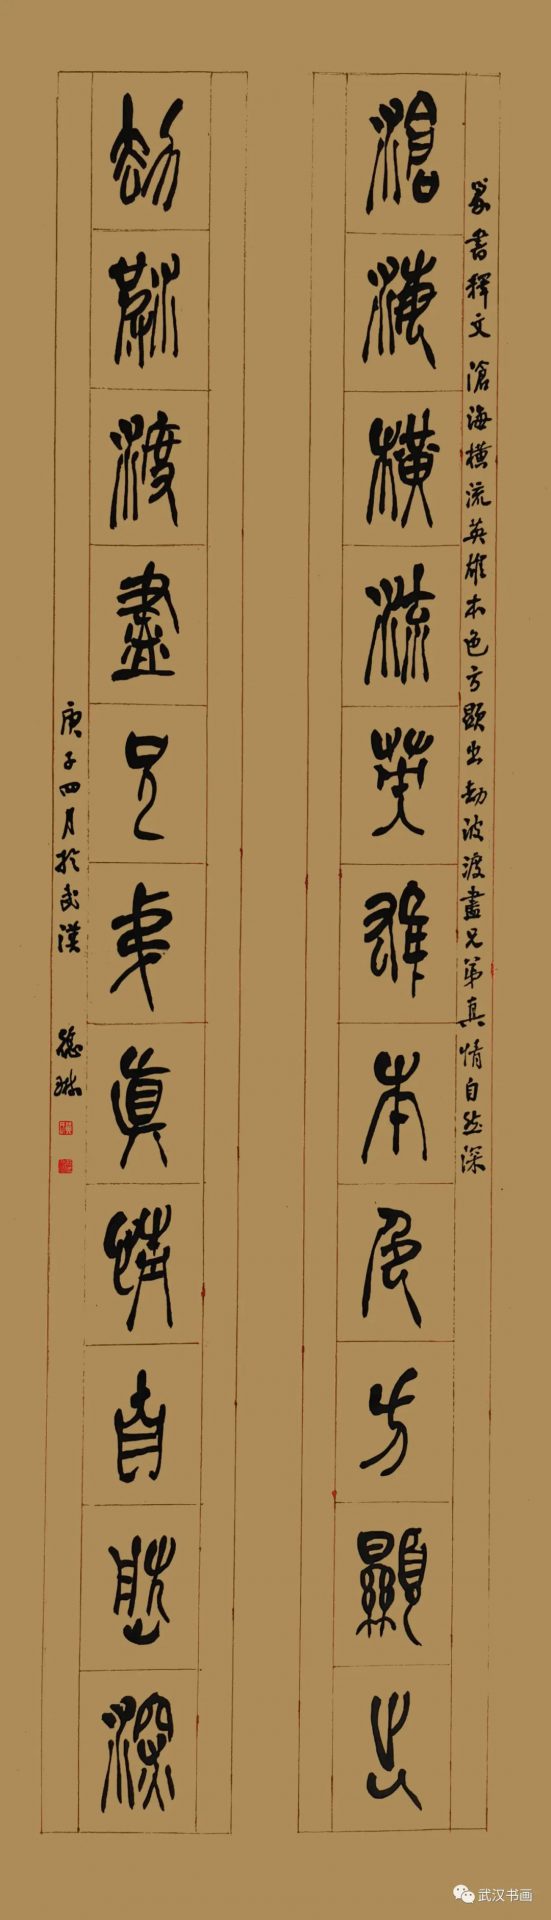 篆書釋文 滄海橫流英雄本色方顯出 劫波渡盡兄弟真情自然深
滄海橫流英雄本色方顯出
劫波渡盡兄弟真情自然深
庚子四月於武漢 德琳
武汉书画